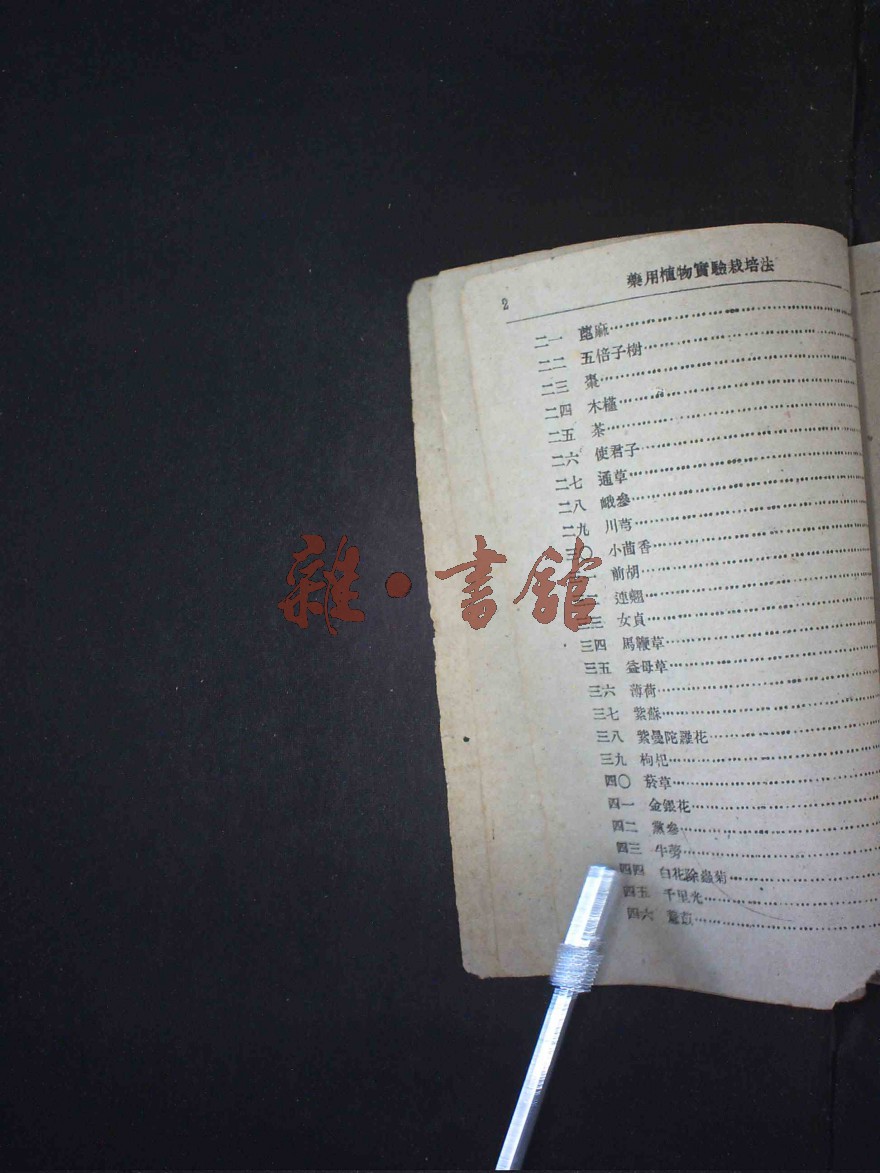 2
藥用植物實驗栽培法
二一 蓖麻
二二 五倍子樹
二三 棗
二四 木槿
二五 茶
二六 使君子
二七 通草
二八 峨參
二九 川芎
三〇 小茴香
前胡
連翹
三 女貞
三四 馬鞭草
三五 益母草
三六 薄荷
三七 紫蘇
三八 紫曼陀蘿花
三九 枸杞
四〇 菸草
四一 金銀花
四二 黨參
四三 牛蒡
四四 白花除蟲菊
四五 千里光
四六
雜·書館